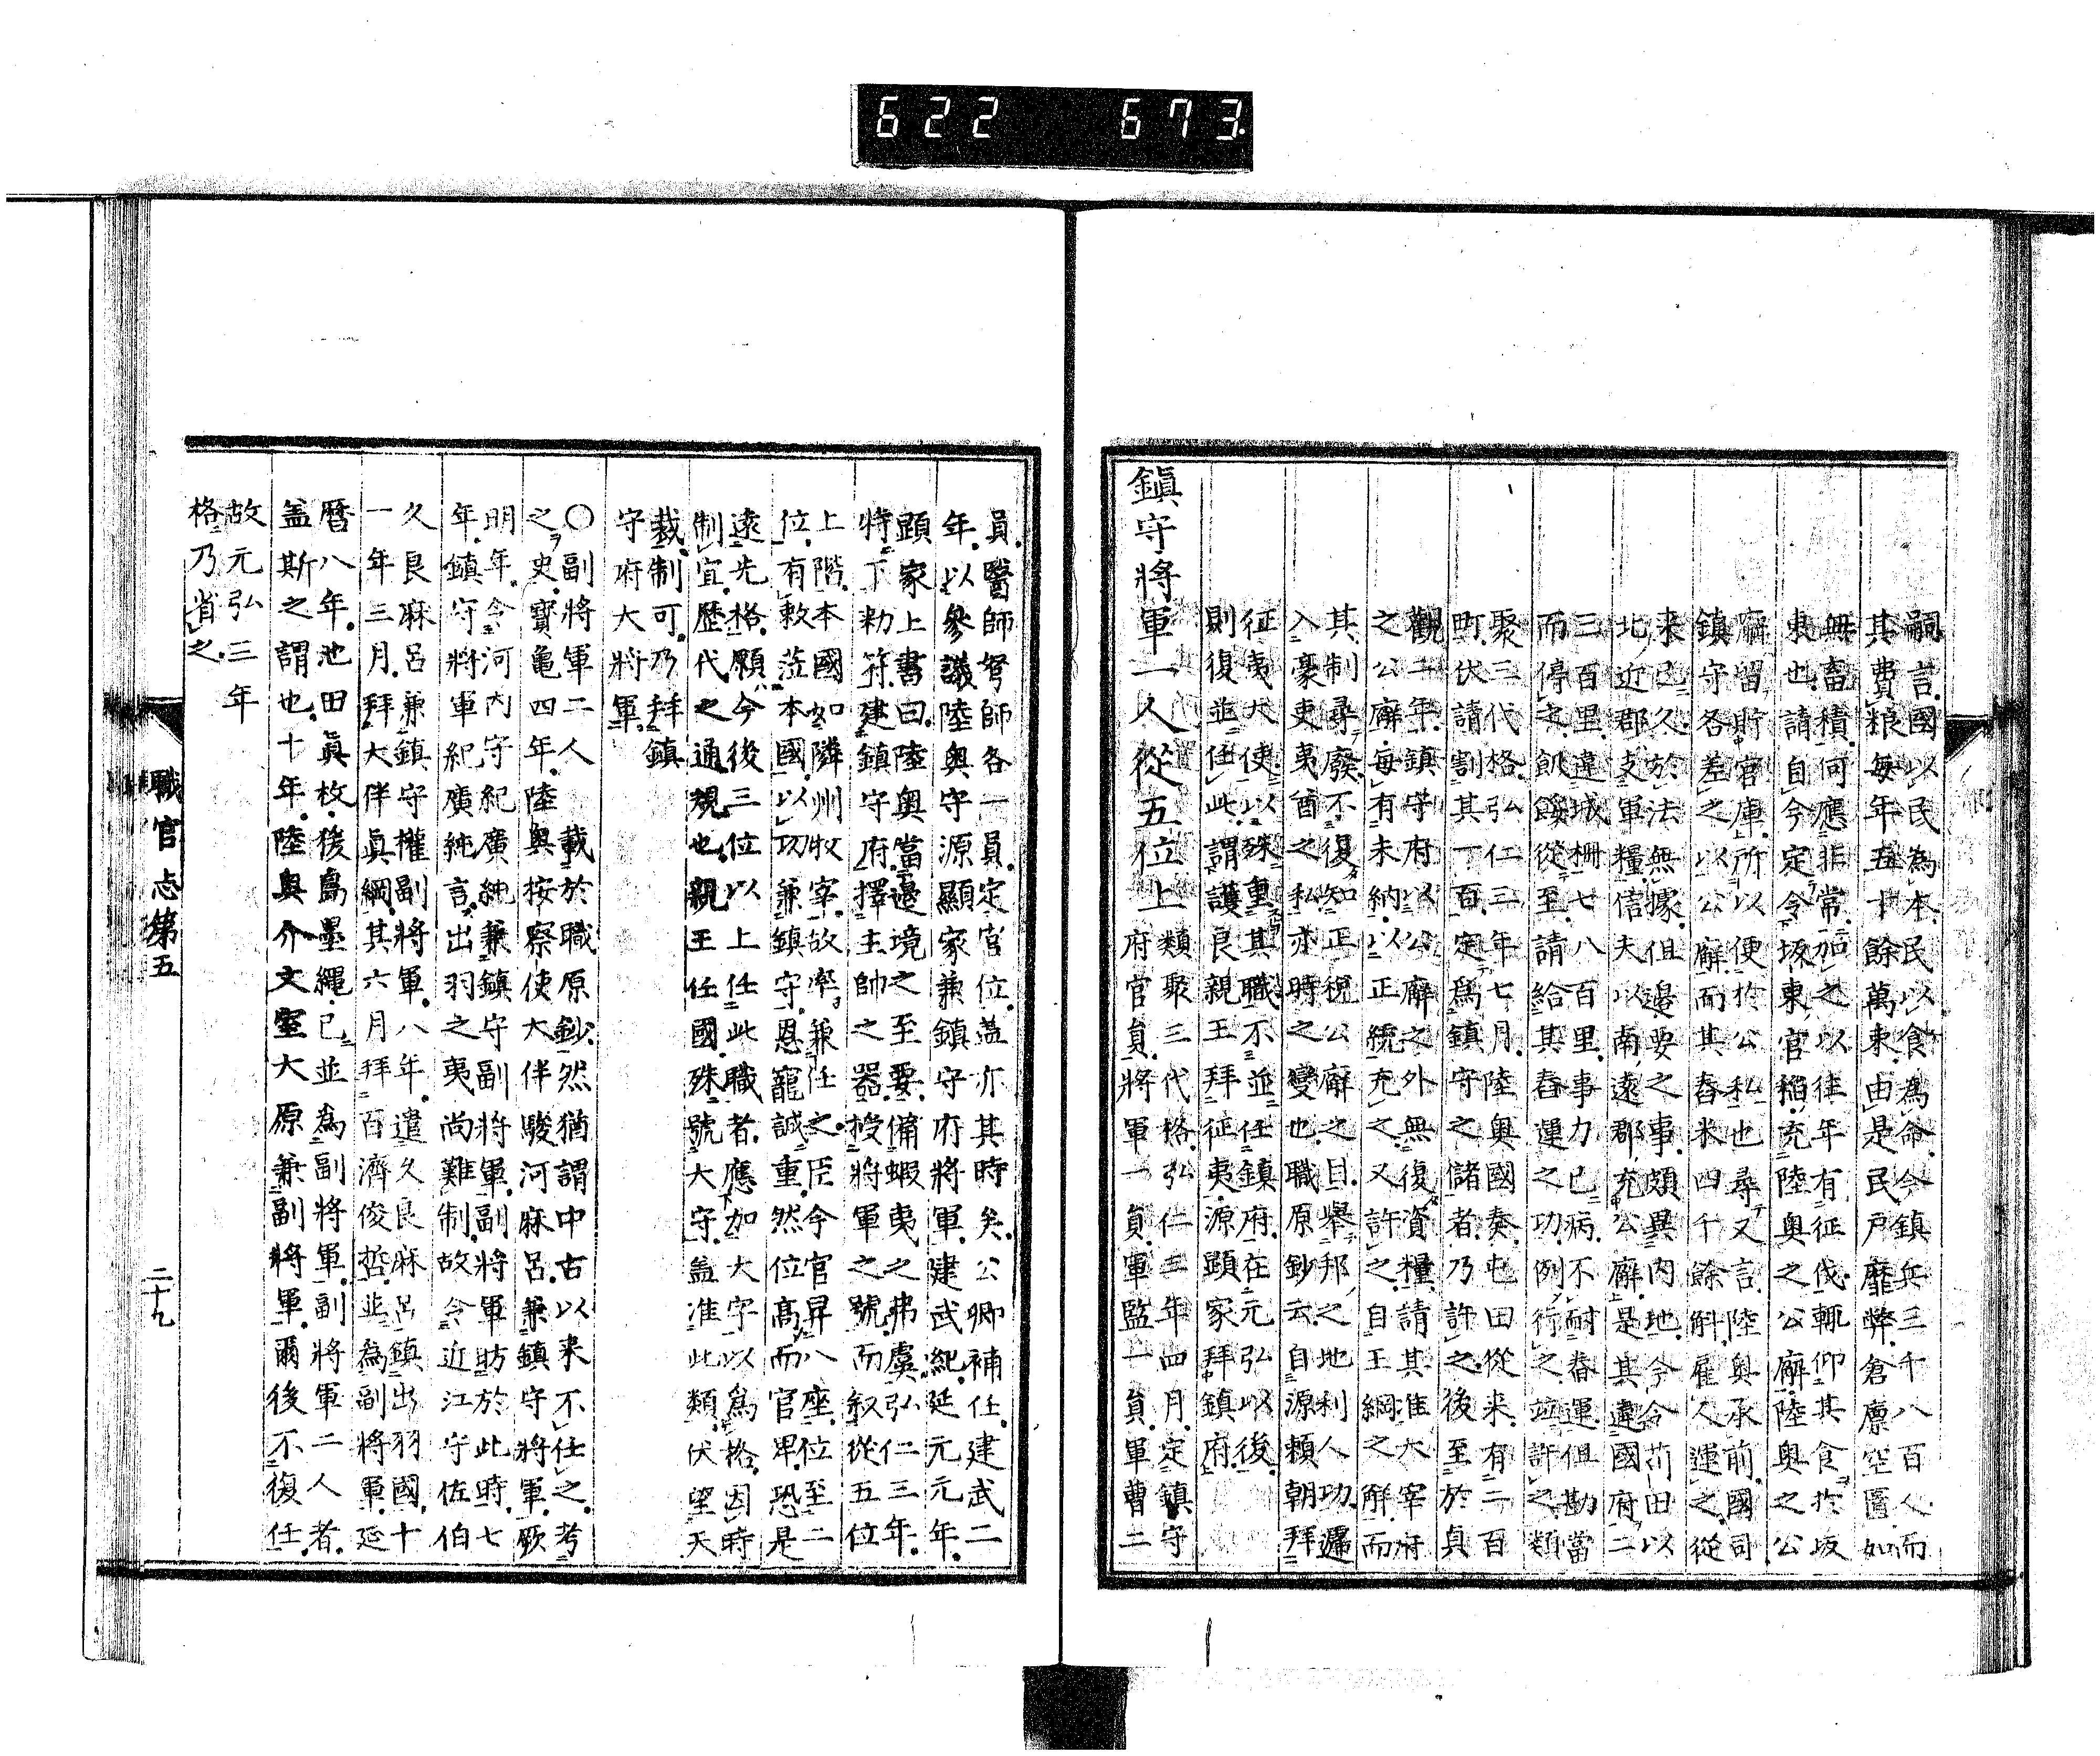 622 673
嗣言國以民為本民以食為命今鎮兵三千八百人而
其費粮每年五十餘萬束由是民戸靡弊倉廩空匱如
無畜積何應非常加之以往年有征伐輙仰其食於坂
東也請自今定令坂東官稲充陸奥之公廨陸奥之公
廨留貯官庫所以便於公私也尋又言陸奥承前國司
鎮守各差之以公廨而其舂米四千餘斛雇人運之從
来已久於法無據但邉要之事頗異内地今令苅田以
北近郡支軍糧信夫以南遠郡充公廨是其違國府二
三百里違城柵七八百里事力已病不耐舂運但勘當
而停之飢餒從至請給其舂運之功例行之竝許之類
聚三代格弘仁三年七月陸奥國奏屯田從来有二百
町伏請割其一百定為鎮守之儲者乃許之後至於貞
觀二年鎮守府以公廨之外無復資糧請其准大宰府
之公廨每有未納以正統充之又許之自王綱之解而
其制尋廢不復知正税公廨之目舉邦之地利人功遷
入豪吏夷酋之私亦時之變也職原鈔云自源頼朝拜
征夷大使以殊重其職不並任鎮府在元弘以後
則復並任此謂護良親王拜征夷源顕家拜鎮府
鎮守將軍一人從五位上
類聚三代格弘仁三年四月定鎮守
府官員將軍一員軍監一員軍曹二
員醫師弩師各一員定官位蓋亦其時矣公卿補任建武二
年以參議陸奥守源顯家兼鎮守府將軍建武紀延元元年
顕家上書曰陸奥當邊境之至要備蝦夷之弗虞弘仁三年
特下勅符建鎮守府擇主帥之器授將軍之號而叙從五位
上階本國如隣州牧宰故率兼任之臣今官昇八座位至二
位有敕莅本國以功兼鎮守恩寵誠重然位髙而官卑恐是
遠先格願今後三位以上任此職者應加大字以爲格因時
制宜歴代之通規也親王任國殊號大守盖准此類伏望天
裁制可乃拜鎮
守府大將軍
○副將軍二人載於職原鈔然猶謂中古以来不任之考
之史寳亀四年陸奥按察使大伴駿河麻呂兼鎮守將軍欽
明年令河内守紀廣純兼鎮守副將軍副將軍昉於此時七
年鎮守將軍紀廣純言出羽之夷尚難制故令近江守佐伯
久良麻呂兼鎮守權副將軍八年遣久良麻呂鎮出羽國十
一年三月拜大伴眞綱其六月拜百濟俊哲並為副將軍延
曆八年池田眞枚後島墨縄已並為副將軍副將軍二人者
盖斯之謂也十年陸奥介文室大原兼副將軍爾後不復任
故元弘三年
格乃省之
職官志第五
二十九